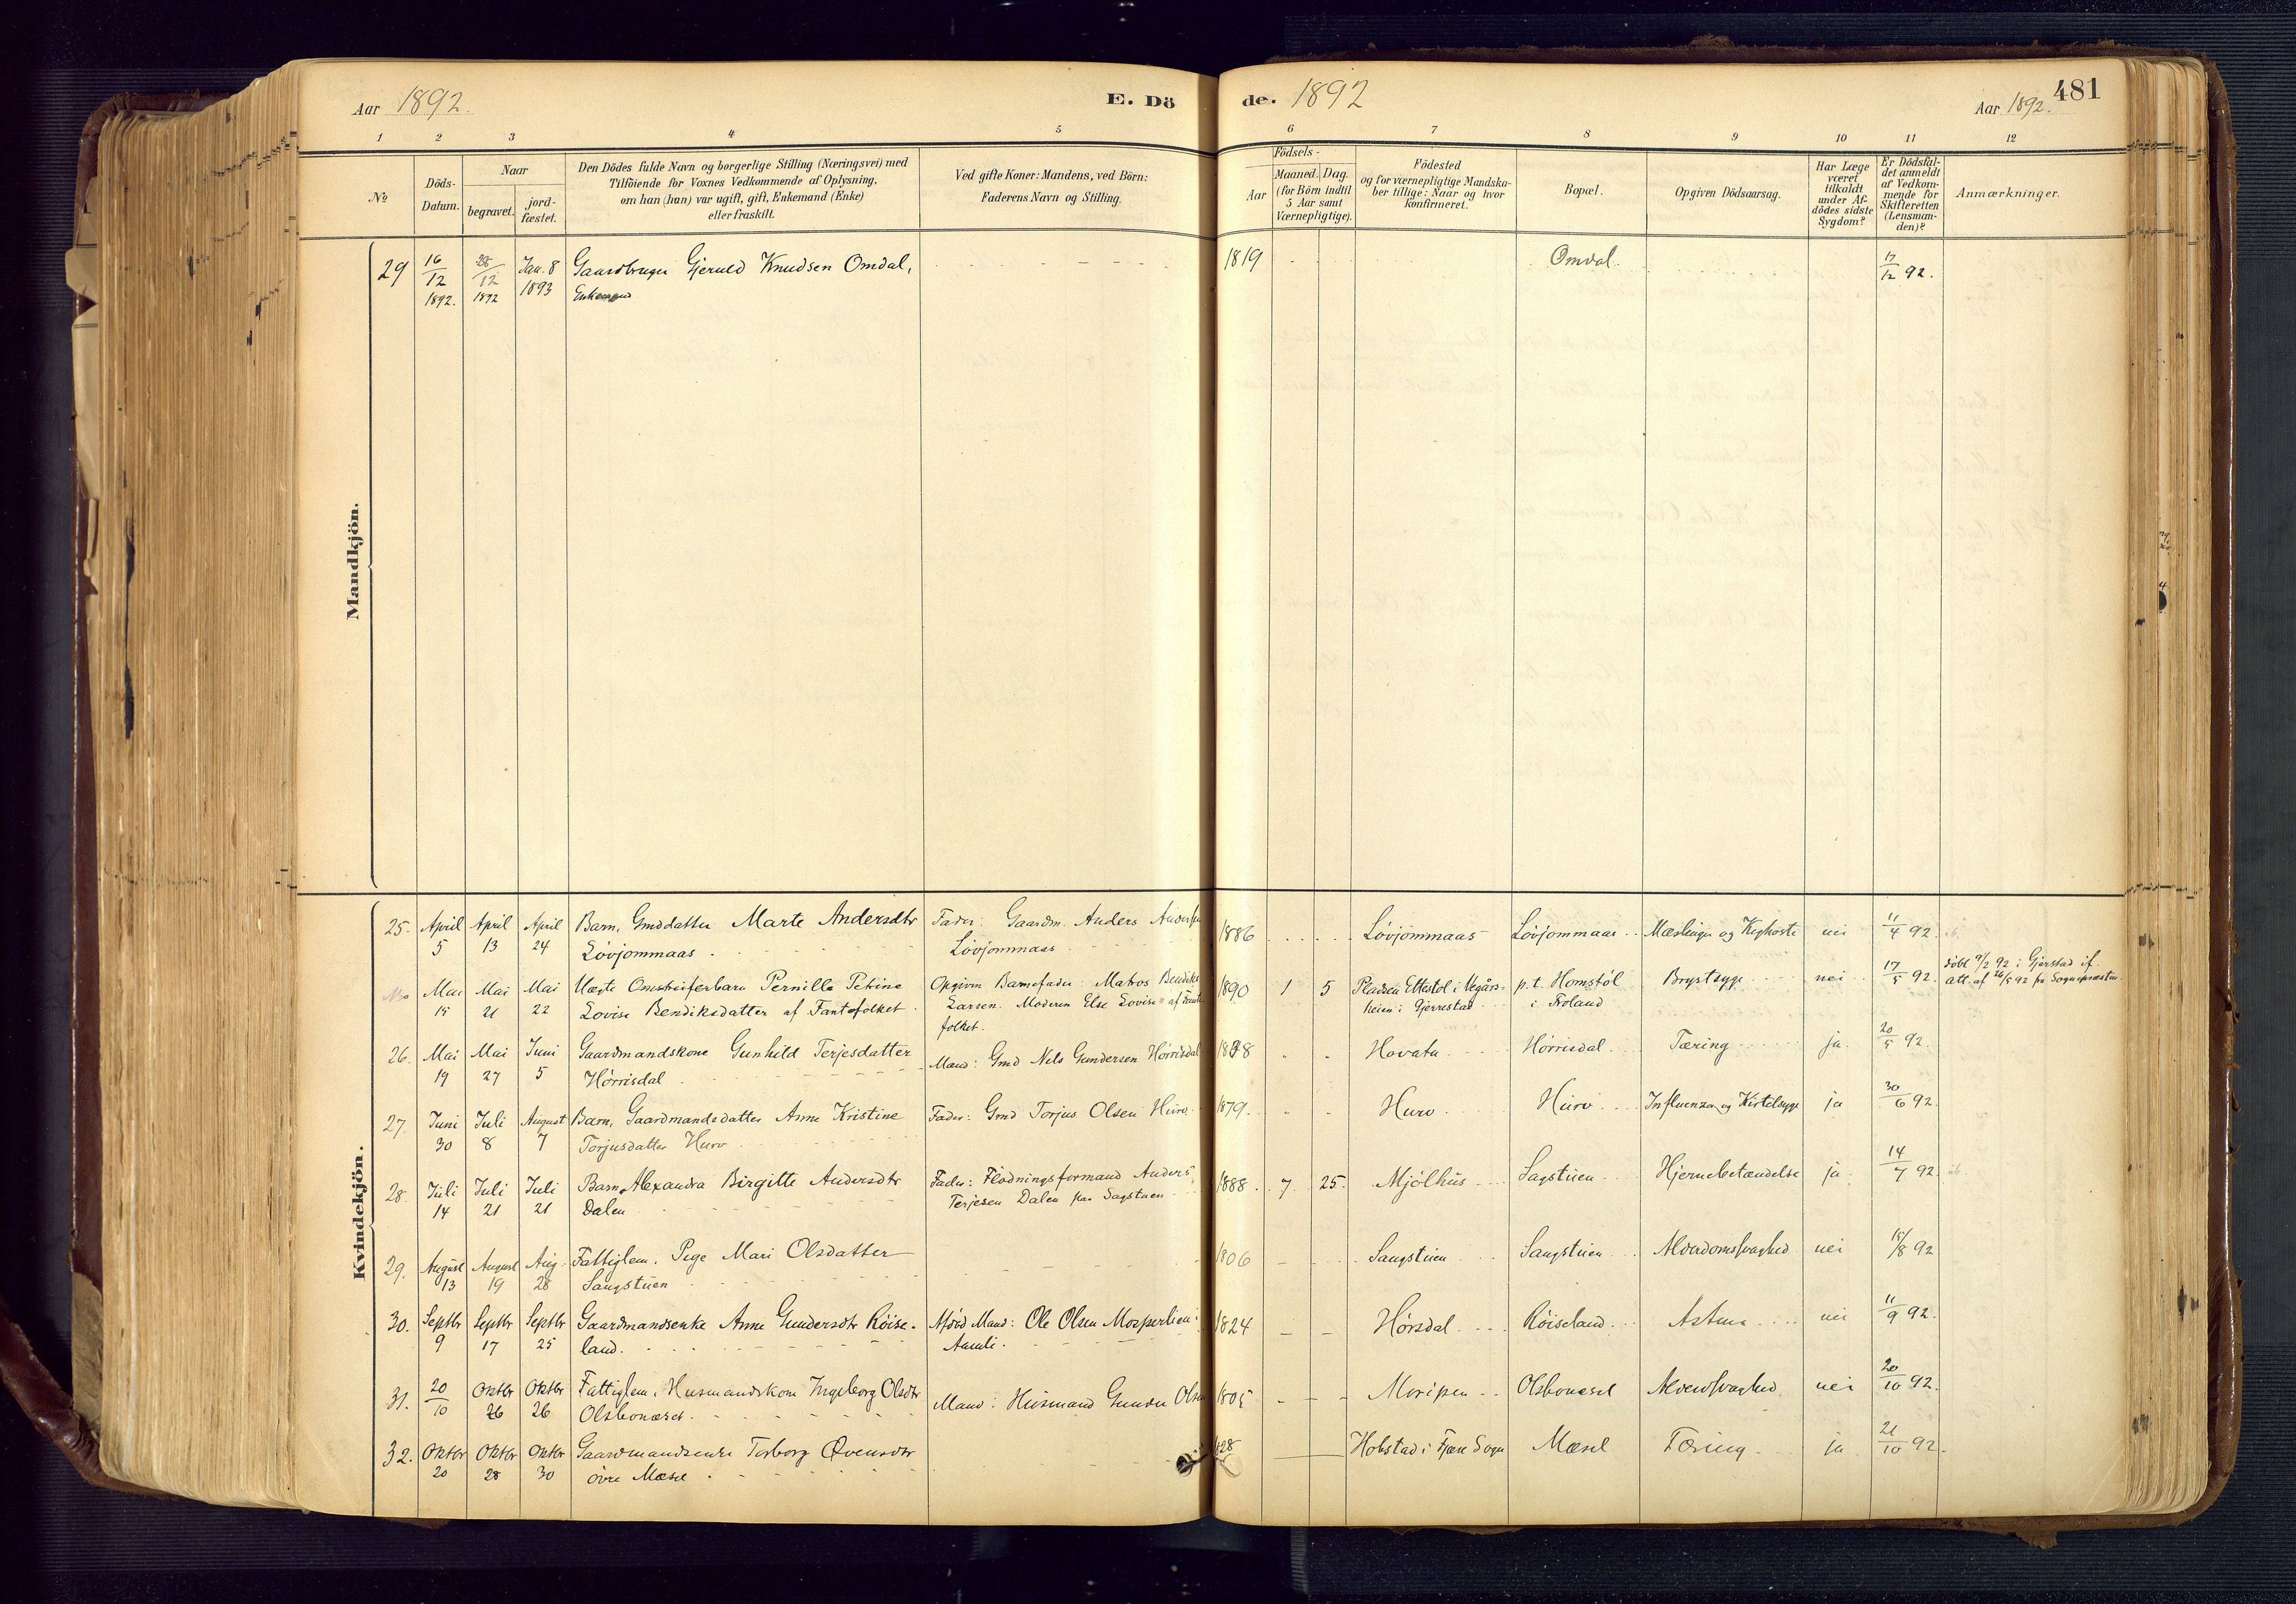 Aar 1892. E. Dö
de. 1892 Aar 1892. 481
1 2 3 4 5 6 7 8 9 10 11 12
№
Döds-
Datum.
Naar
begravet.
jord-
fæstet.
Den Dödes fulde Navn og borgerlige Stilling (Næringsvei) med
Tilföiende for Voxnes Vedkommende af Oplysning,
om han (hun) var ugift, gift, Enkemand (Enke)
eller fraskilt.
Ved gifte Koner: Mandens, ved Börn:
Faderens Navn og Stilling.
Födsels-
Aar
Maaned. Dag.
(for Börn indtil
5 Aar samt
Værnepligtige).
Födested
og for værnepligtige Mandska-
ber tillige: Naar og hvor
konfirmeret.
Bopæl.
Opgiven Dödsaarsag.
Har Læge
været
tilkaldt
under Af-
dödes sidste
Sygdom?
Er Dödsfal-
det anmeldt
af Vedkom-
mende for
Skifteretten
(Lensman-
den)?
Anmærkninger.
Mandkjön.
29 16/12 1892. 28/12 1892 Jan. 8 1893 Gaardbruger Gjeruld Knudsen Omdal,
Enkemand
1819 Omdal. 17/12 92.
Kvindekjön.
25. April 5 April 13 April 24 Barn, Gmddatter Marte Andersdtr
Lövjommaas
Fader: Gaardm. Anders Anders
Lövjommaas
1886 Lövjommaas Lövjommaas Mæslinger og Kighoste nei 11/4 92.
Mai 15 Mai 21 Mai 22 Uægte Omstreiferbarn Pernille Petrine
Lovise Bendiksdatter af Fantefolket
Opgiven Barnefader: Matros Bendiks
Larsen. Moderen Else Lovise af Fante
folket.
1890 1 5 Pladsen Ettestöl i Vegårs-
heien i Gjerrestad
p. t. Homstöl
i Froland
Brystsyge nei 17/5 92.
döbt 9/2 92 i Gjerstad if.
att. af 26/5 92 fra Sognepræsten
26. Mai 19 Mai 27 Juni 5 Gaardmandskone Gunhild Terjesdatter
Hörrisdal
Mand: Gmd Nels Gundersen Hörrisdal
Hovatn Hörrisdal Tæring ja 20/5 92.
27. Juni 30 Juli 8 August 7 Barn, Gaardmandsdatter Anne Kristine
Torjusdatter Hurv
Fader: Gmd Torjus Olsen Hurv
1879. Hurv Hurv Influenza og Kirtelsyge ja 30/6 92.
28. Juli 14 Juli 21 Juli 21 Barn, Alexandra Birgitte Andersdtr
Dalen
Fader: Flödningsformand Anders
Terjesen Dalen paa Sagstuen
1888. 7 25. Mjölhus Sagstuen Hjernebetændelse ja 14/7 92
29. August 13 August 19 Aug. 28 Fattiglem. Pige Mari Olsdatter
Saugstuen
1806 Saugstuen Saugstuen Alderdomssvaghed nei 15/8 92
30. Septbr 9 Septbr 17 Septbr 25 Gaardmandsenke Anne Gundersdtr Röise-
land.
Afdöd Mand: Ole Olsen Mosperlien i
Aamli.
1824 Hörsdal Röiseland Astma nei 11/9 92.
31. 20/10 Oktbr 26 Oktbr 26 Fattiglem, Husmandskone Ingeborg Olsdtr
Olsbonæset
Mand: Husmand Gunder Olsen
1805 Moripen Olsbonæset nei 20/10 92.
32. Oktbr 20 Oktbr 28 Oktbr 30 Gaardmandsenke Torborg Övensdtr
övre Mæsel
1828 Hobstad i Fjære Sogn Mæsel Tæring ja 21/10 92.